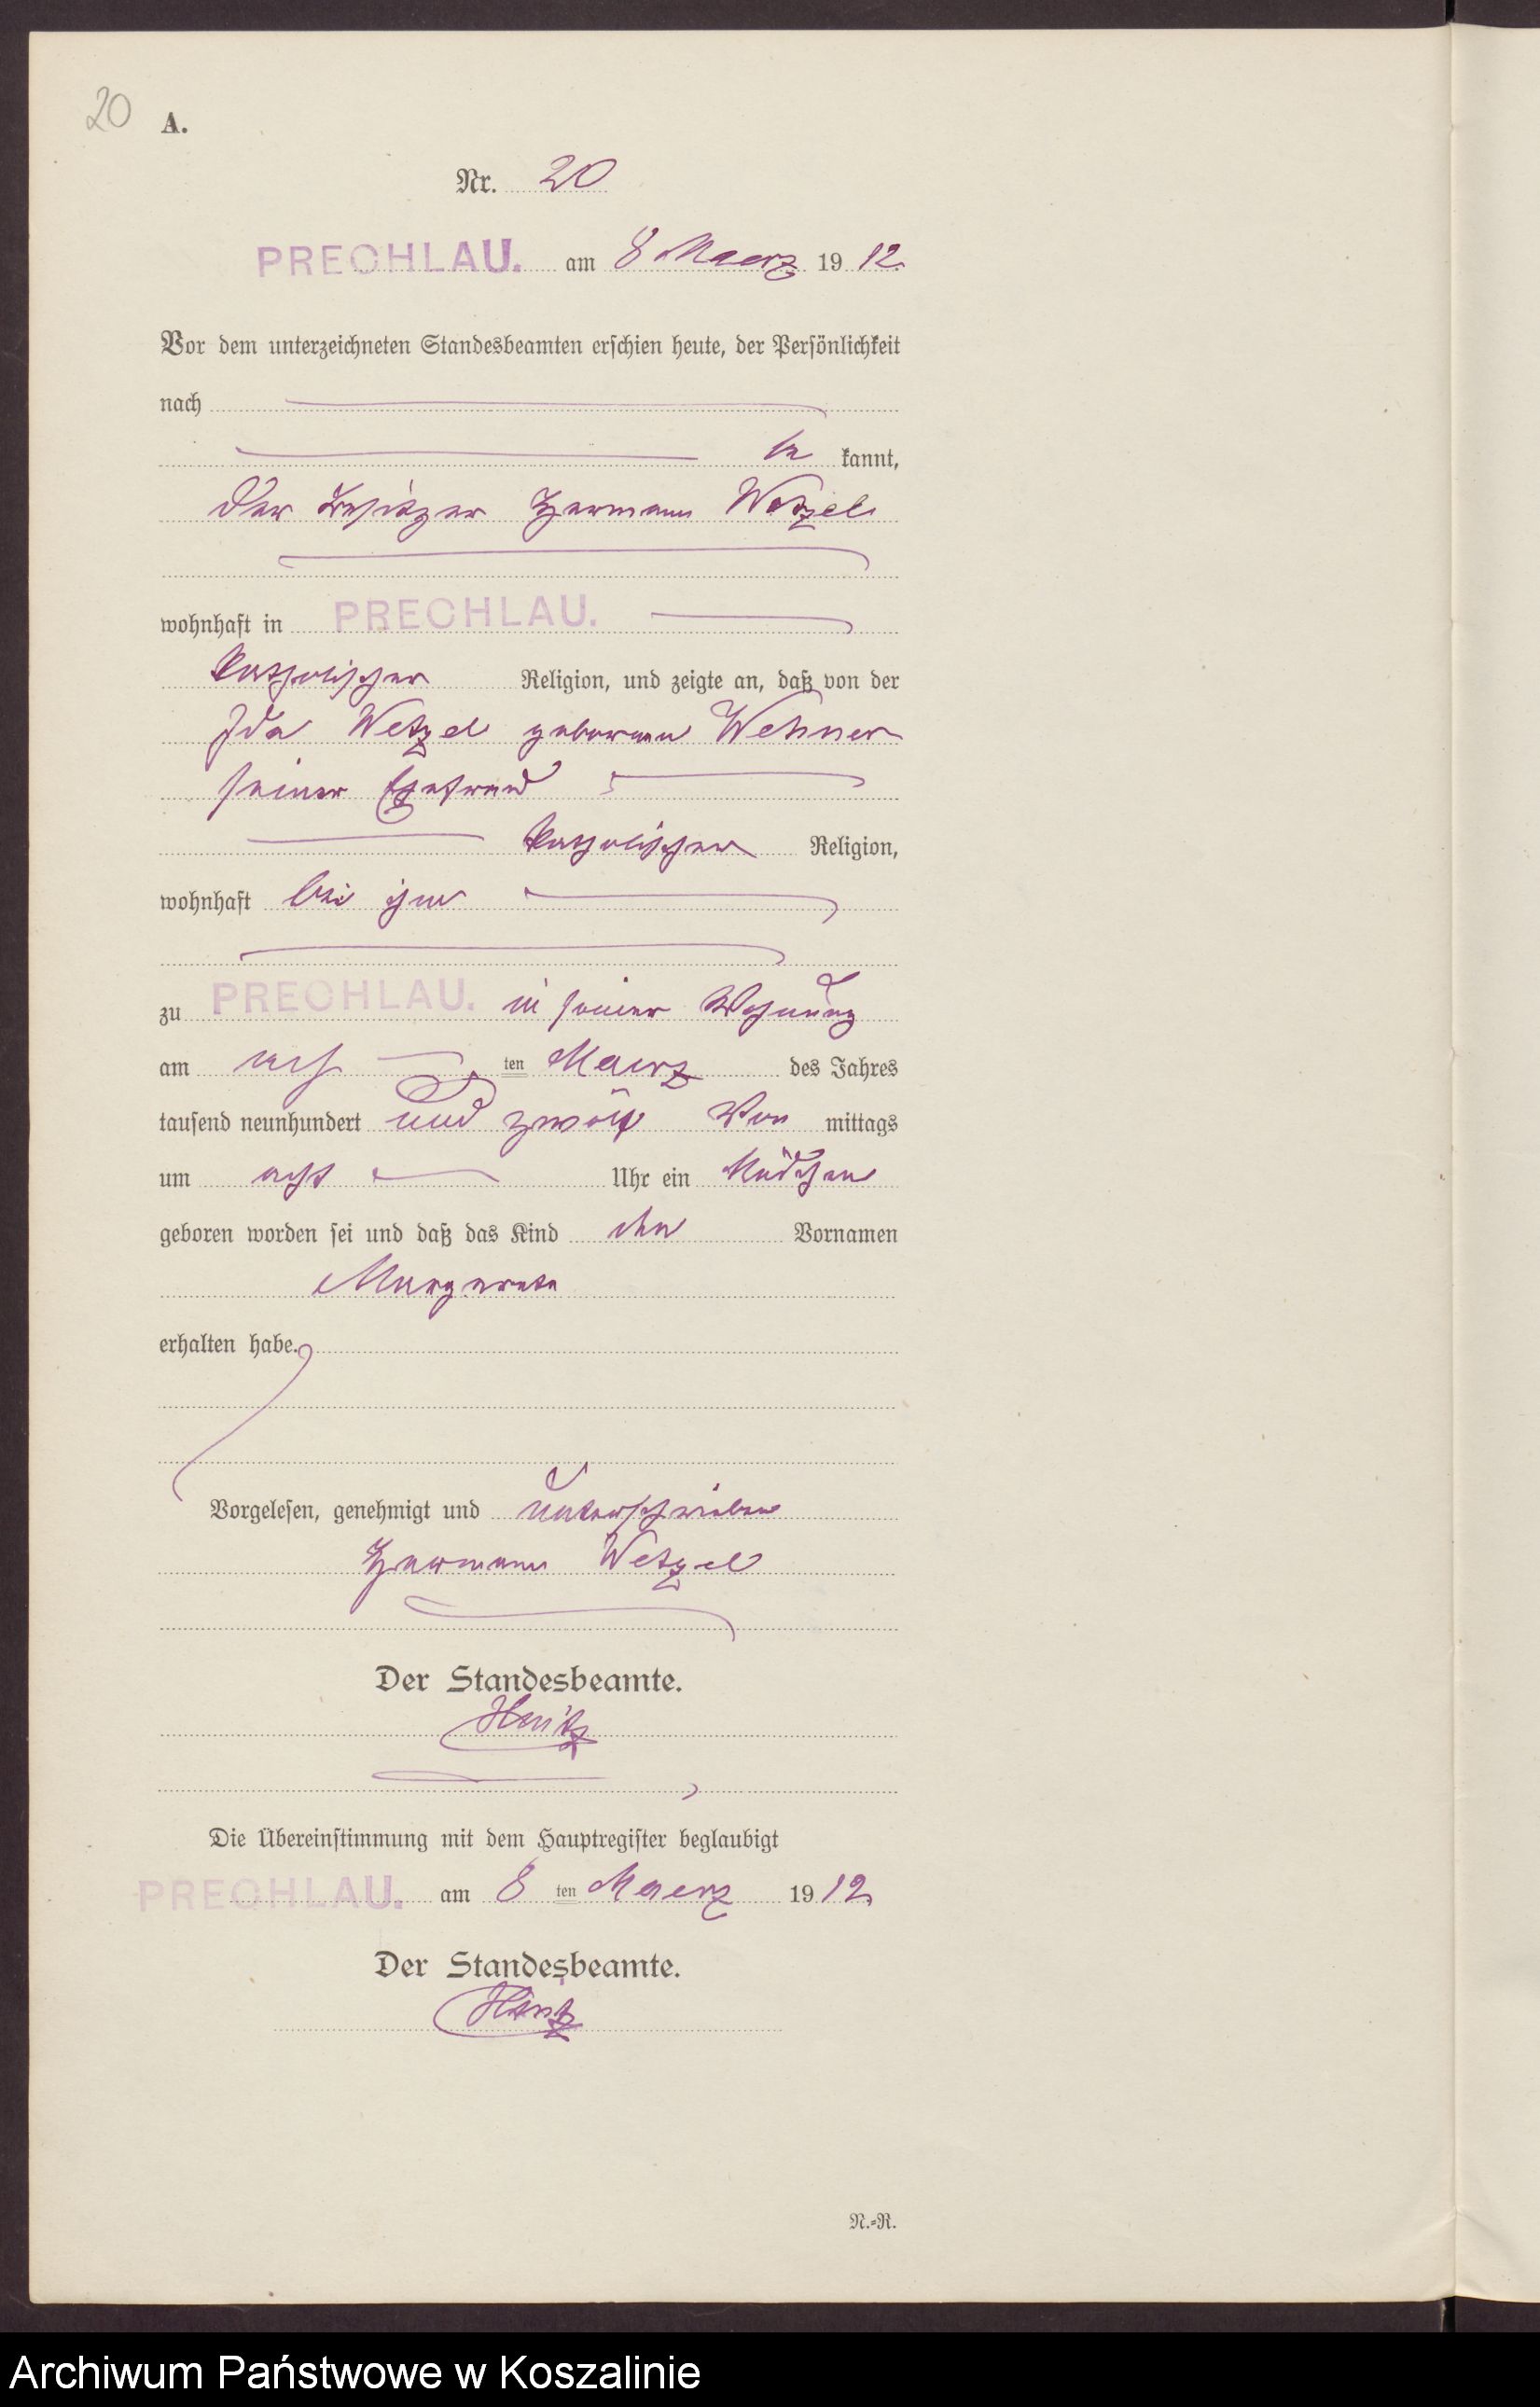 20 A.
Nr. 20
PRECHLAU. am 8 Maerz 1912.
Vor dem unterzeichneten Standesbeamten erschien heute, der Persönlichkeit
nach
be kannt,
der Besitzer Hermann Wetzel
wohnhaft in PRECHLAU.
katholischer Religion, und zeigte an, daß von der
Ida Wetzel geborenen Wehner
seiner Ehefrau
katholischer Religion,
wohnhaft bei ihm
zu PRECHLAU. in seiner Wohnung
am ten Maerz des Jahres
tausend neunhundert und zwölf Vor mittags
um acht Uhr ein Mädchen
geboren worden sei und daß das Kind den Vornamen
Margarete
erhalten habe.
Vorgelesen, genehmigt und unterschrieben
Hermann Wetzel
Der Standesbeamte.
Die Übereinstimmung mit dem Hauptregister beglaubigt
PRECHLAU. am 8 ten Maerz 1912.
Der Standesbeamte.
N.-R.
Archiwum Państwowe w Koszalinie